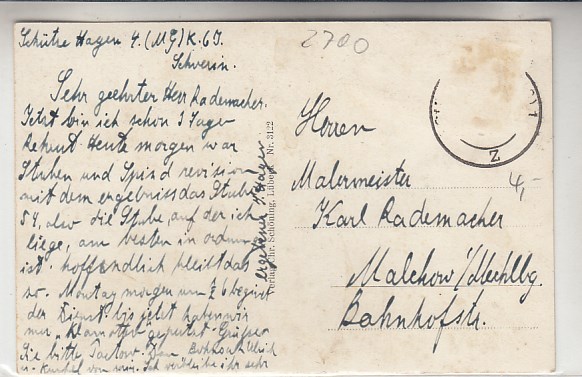 Schütze Hagen 4. (MG) K. 6 I.
Schwerin.
2700
Sehr geehrter Herr Rademacher.
Jetzt bin ich schon 3 Tage
Rekrut. Heute morgen war
Stuben und Spind revision
mit dem ergebniss das Stube
54, also die Stube, auf der ich
liege, am besten in ordnung
ist. hoffendlich bleibt das
so. Montag morgen um
der Dienst bis jetzt haben wir
nur gepurtzt Grüßen
Sie bitte
von mir. Ich verbleibe ihr sehr
ergebener Hagen
Verlag Chr. Schöning, Lübeck Nr. 3122
Herren
Malermeister
Karl Rademacher
Malchow i/Mechlbg.
Bahnhofstr.
4,-
Z